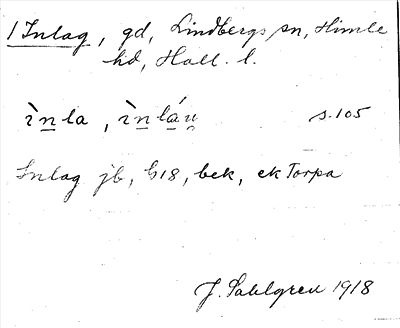 1 Inlag, gd, Lindbergs sn, Himle
hd, Hall. l.
ı̀n̲la, ı̀n̲lá̲u̯ s. 105
Inlag jb, G18, bek, ek Torpa
J. Sahlgren 1918